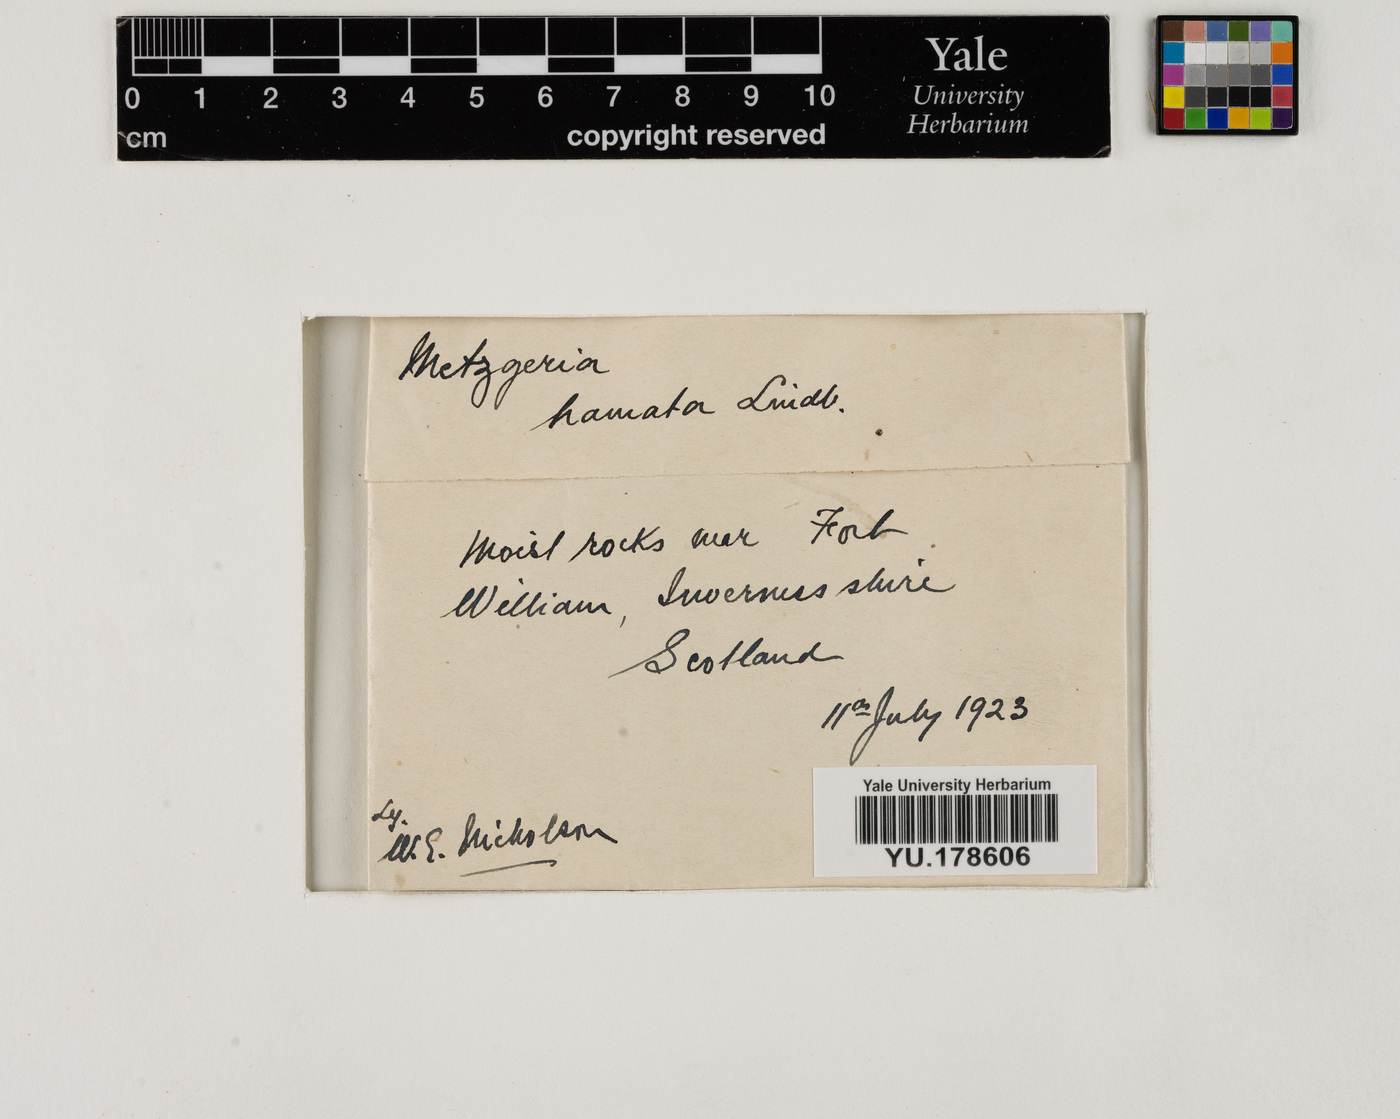 0 1 2 3 4 5 6 7 8 9 10
cm
copyright reserved
Yale
University
Herbarium
Metzgeria
hamata Lindb.
Moist rocks near Fort
William, Inverness shire
Scotland
11th July 1923
Lg.
W.E. Nicholson
Yale University Herbarium
YU.178606